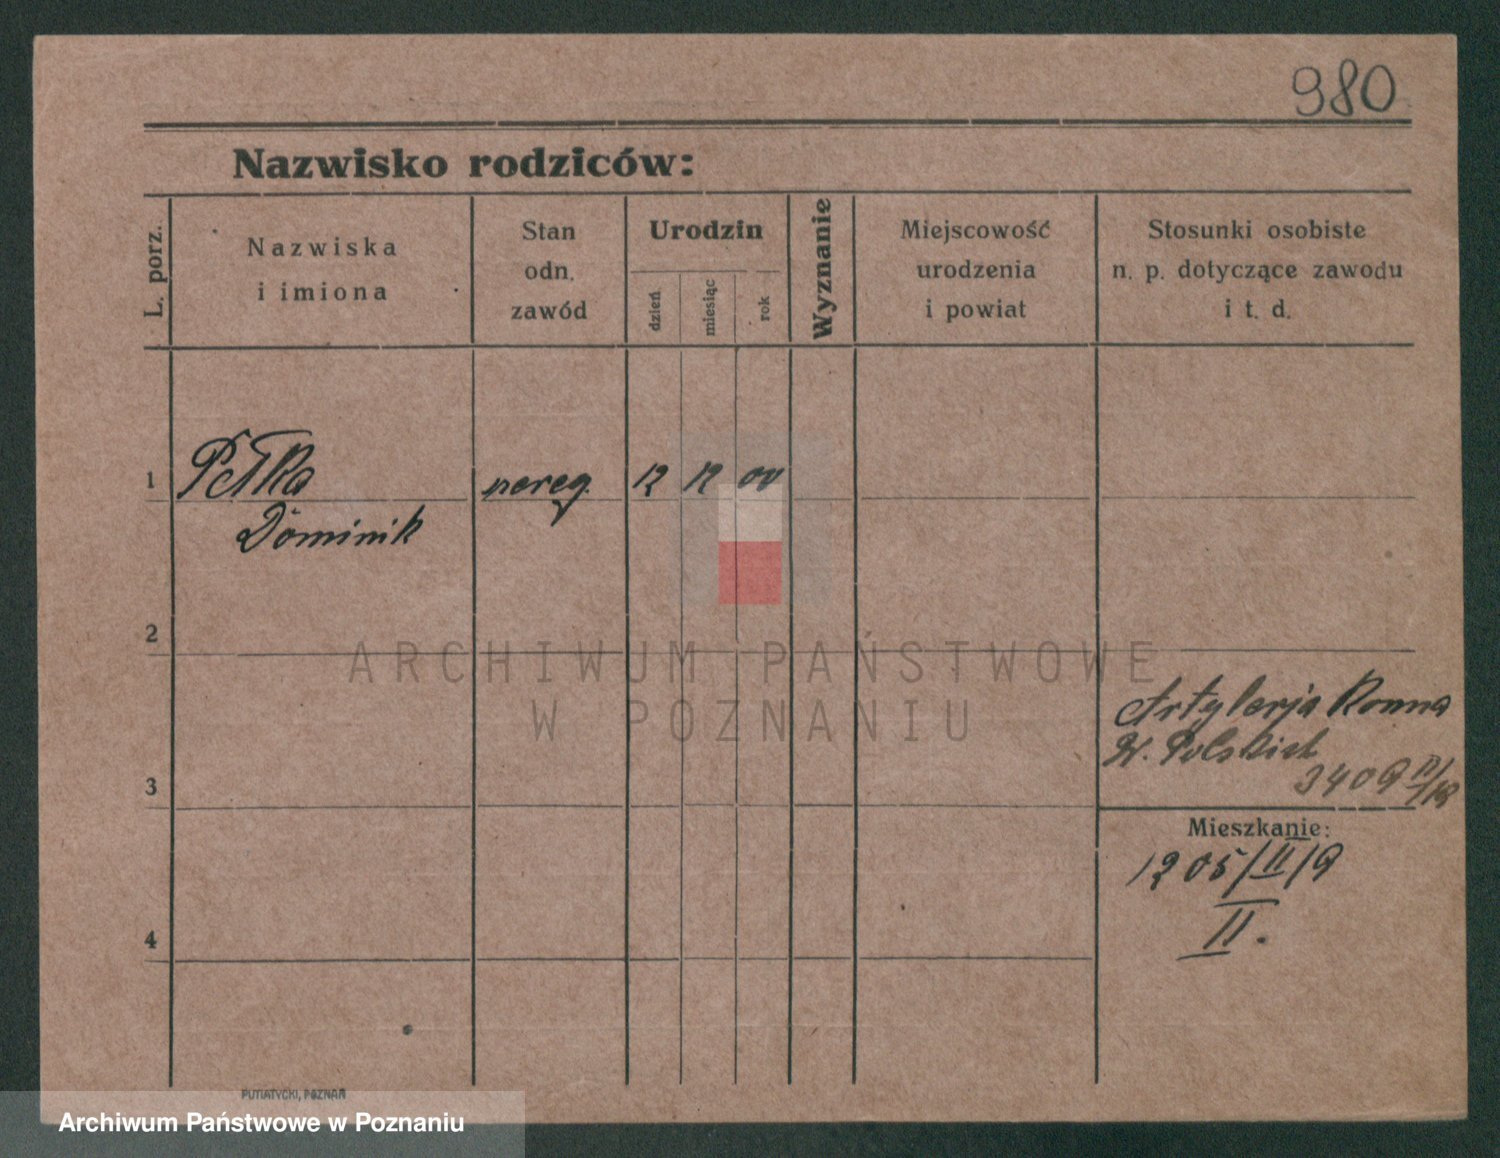 980
Nazwisko rodziców:
L. porz.
Nazwiska
i imiona
Stan
odn.
zawód
Urodzin
dzień
miesiąc
rok
Wyznanie
Miejscowość
urodzenia
i powiat
Stosunki osobiste
n. p. dotyczące zawodu
i t. d.
1
Petka
pereg.
12
12
00
Dominik
2
ARCHIWUM PAŃSTWOWE
W POZNANIU
Artylerja Konna
W. Polskich
3409
3
Mieszkanie:
1205/II/19
II.
4
PUTIATYCKI, POZNAŃ
Archiwum Państwowe w Poznaniu